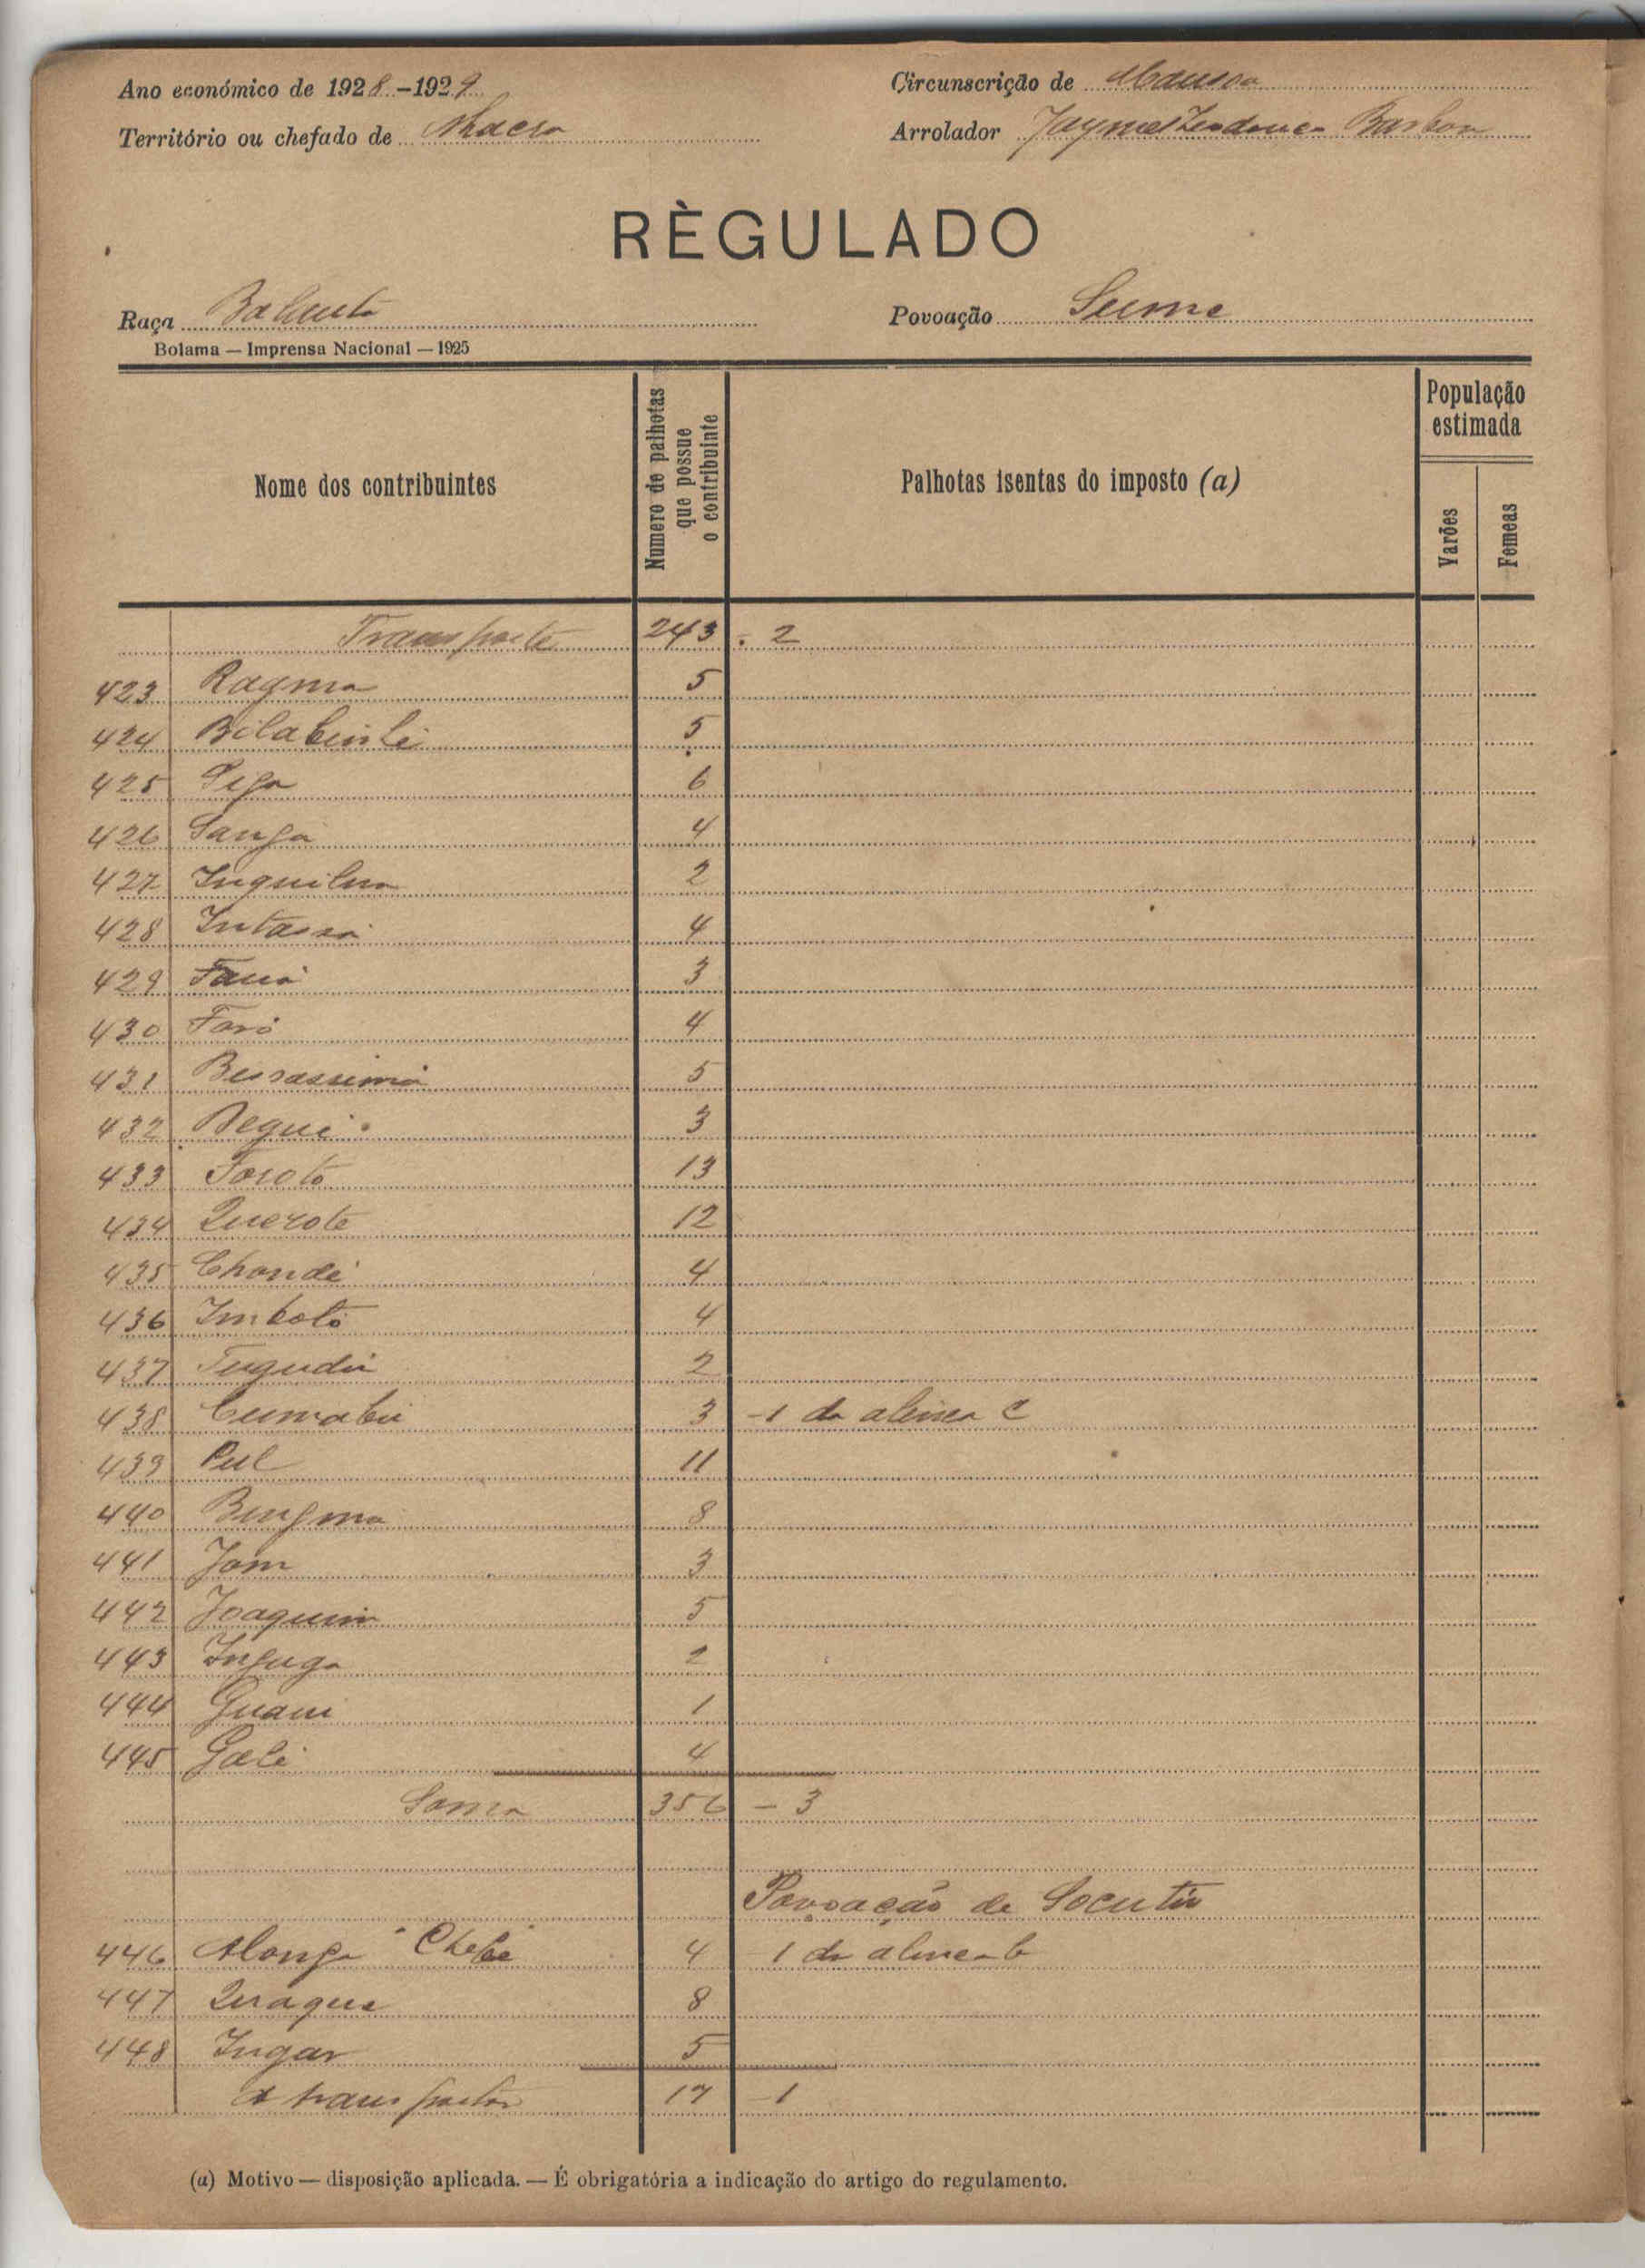 Ano económico de 1928-1929
Circunscrição de Mansoa
Território ou chefado de Nhacra
Arrolador Jayme Barbosa
RÈGULADO
Raça Balanta
Povoação
Bolama — Imprensa Nacional — 1925
Nome dos contribuintes
Numero de palhotas que possue o contribuinte
Palhotas isentas do imposto (a)
População estimada
Varões
Femeas
Transporte 243 - 2
423 Ragma 5
424 5
425 6
426 Sanga 4
427 2
428 Intassá 4
429 3
430 Faró 4
431 5
432 Bequi 3
433 Torotó 13
434 Querote 12
435 Chondé 4
436 Imbotó 4
437 Tugudú 2
438 3 - 1 da alinea c
439 Pul 11
440 Bungma 8
441 Jom 3
442 Joaquim 5
443 2
444 1
445 4
Soma 356 - 3
Povoação de Locutir
446 4 1 da alinea b
447 Quaque 8
448 Ingar 5
A transportar 17 - 1
(a) Motivo — disposição aplicada. — É obrigatória a indicação do artigo do regulamento.